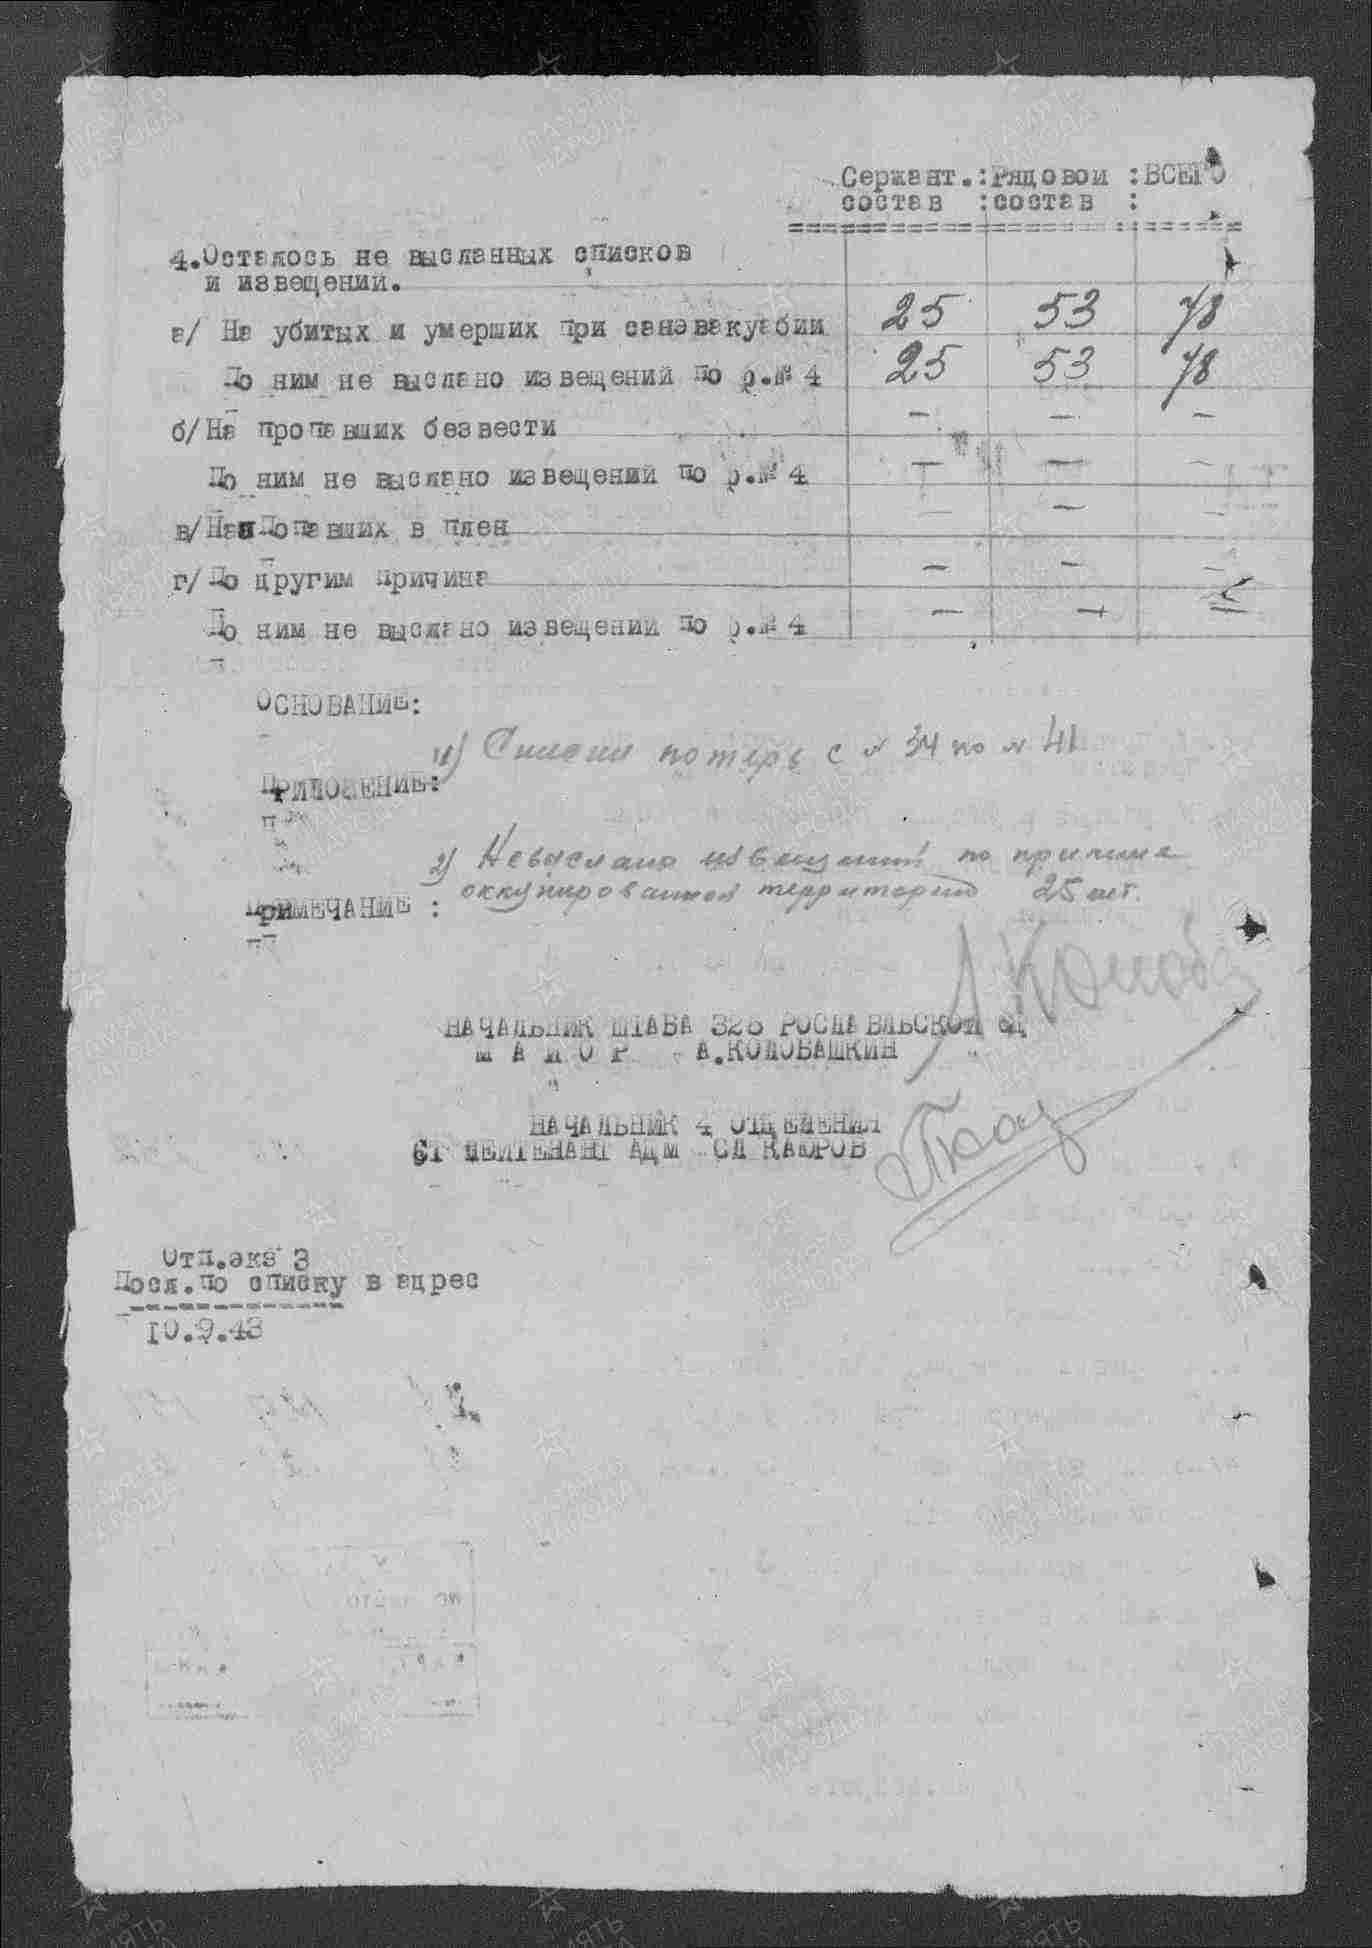 Сержант.:Рядовой :ВСЕГО
состав :состав :
4.Осталось не высланных списков
и извещений.
а/ На убитых и умерших при санэвакуабии 25 53 78
По ним не выслано извещений по ф.№ 4 25 53 78
б/На пропавших безвести — — —
По ним не выслано извещений по ф.№ 4 — — —
в/На попавших в плен — — —
г/По другим причина — — —
По ним не выслано извещений по ф.№ 4 — — —
ОСНОВАНИЕ:
1) Списки потерь с № 34 по № 41
ПРИЛОЖЕНИЕ:
2) Невыслано извещений по причине
оккупированной территорию 25 шт.
ПРИМЕЧАНИЕ :
НАЧАЛЬНИК ШТАБА 326 РОСЛАВЛЬСКОЙ СД
М А Й О Р А.КОЛОБАШКИН
НАЧАЛЬНИК 4 ОТДЕЛЕНИЯ
СТ ЛЕЙТЕНАНТ АДМ СЛ КАЮРОВ
Отп.экз 3
Посл.по списку в адрес
10.9.43
ПАМЯТЬ
НАРОДА